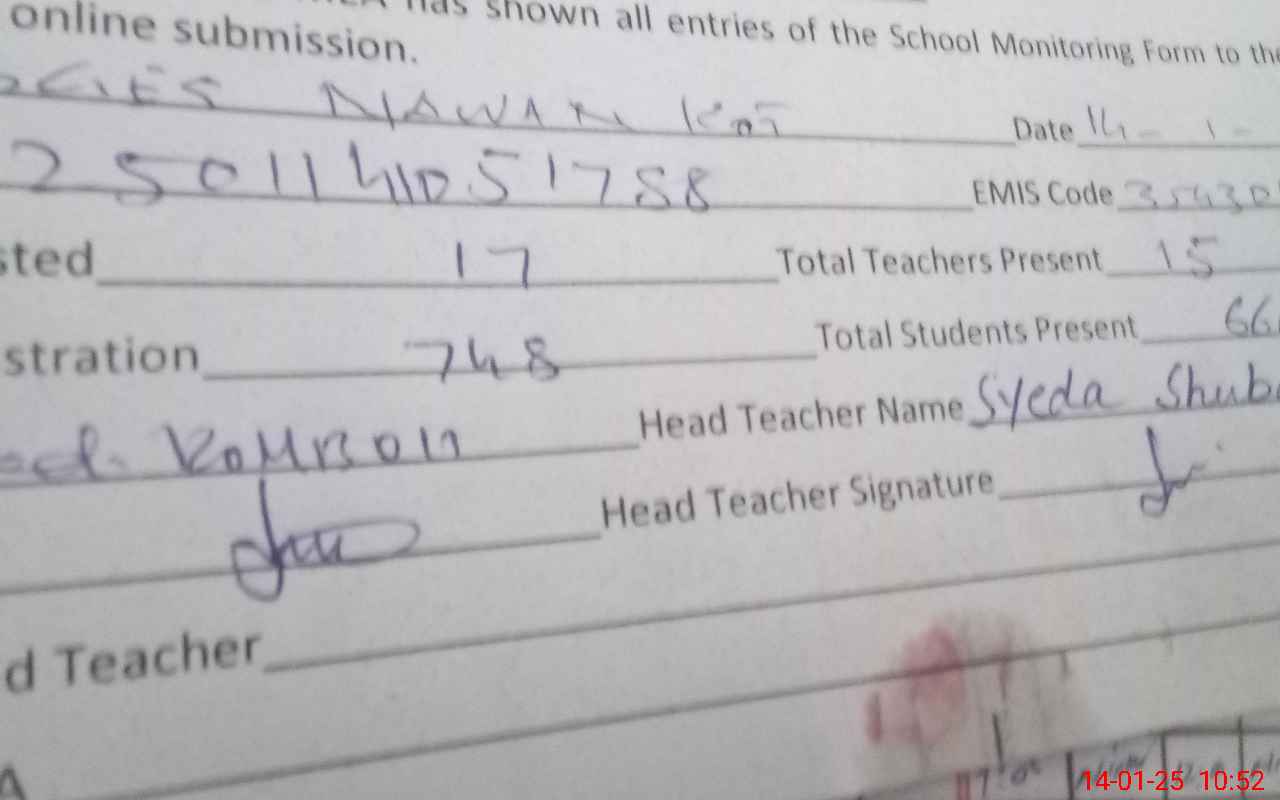 has shown all entries of the School Monitoring Form to the
online submission.
NAWAN KOT Date 14 - 1 -
25011141051758 EMIS Code 35430
sted 17 Total Teachers Present 15
stration 748 Total Students Present 66
Head Teacher Name Syeda Shub
Head Teacher Signature
d Teacher
14-01-25 10:52